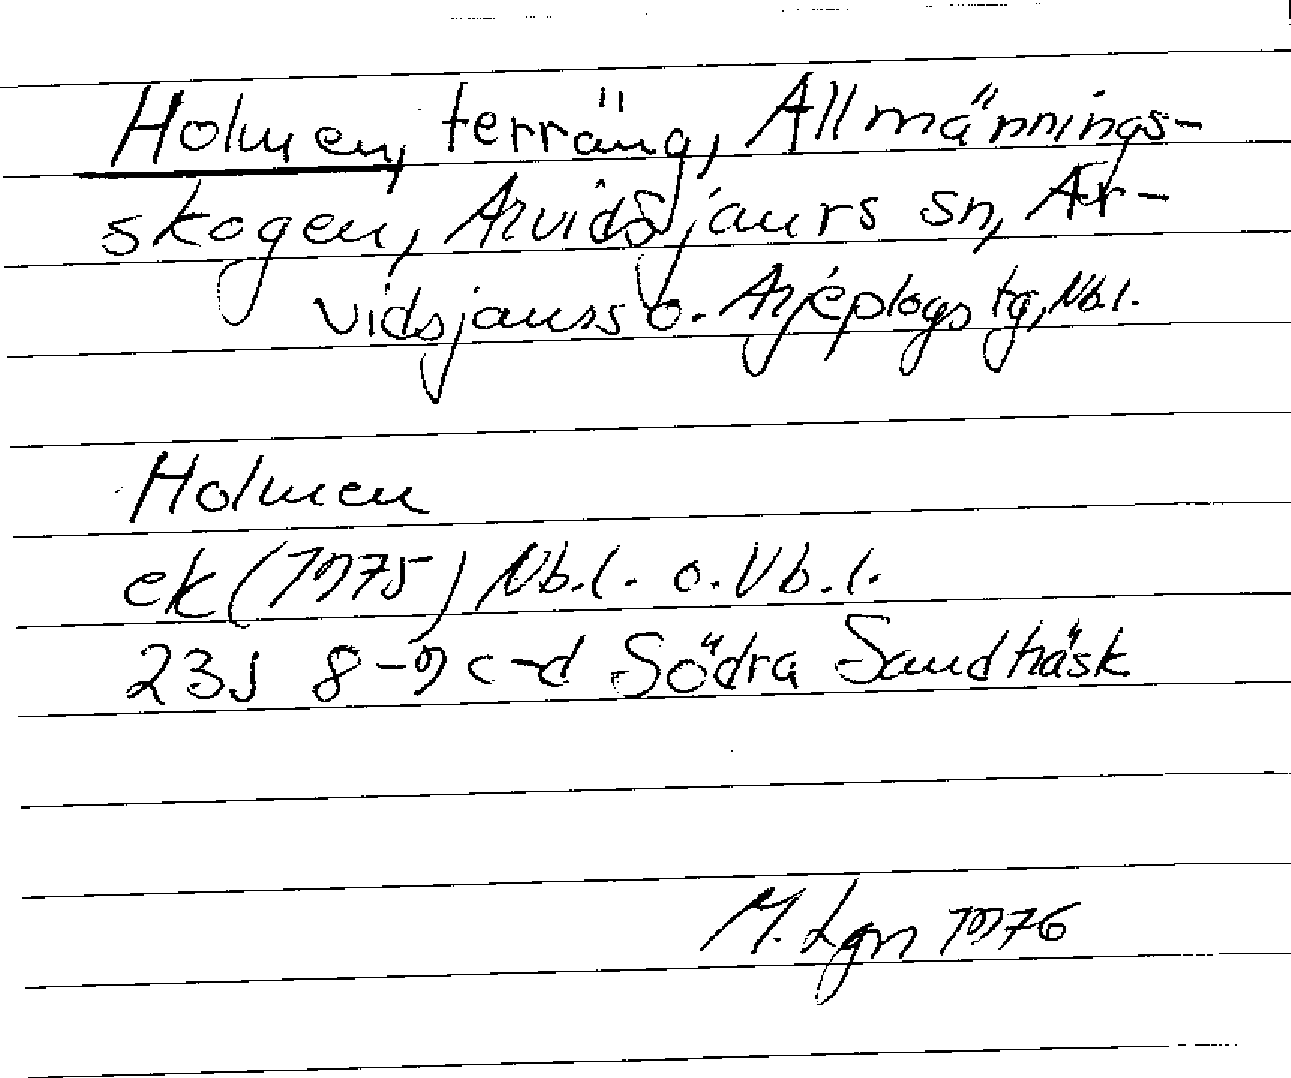 Holmen, terräng, Allmännings-
skogen, Arvidsjaurs sn, Ar-
vidsjaurs o. Arjeplogs tg, Nb.l.
Holmen
ek (1975) Nb.l. o. Vb.l.
23J 8-9 c-d Södra Sandträsk
M. Lgn 1976